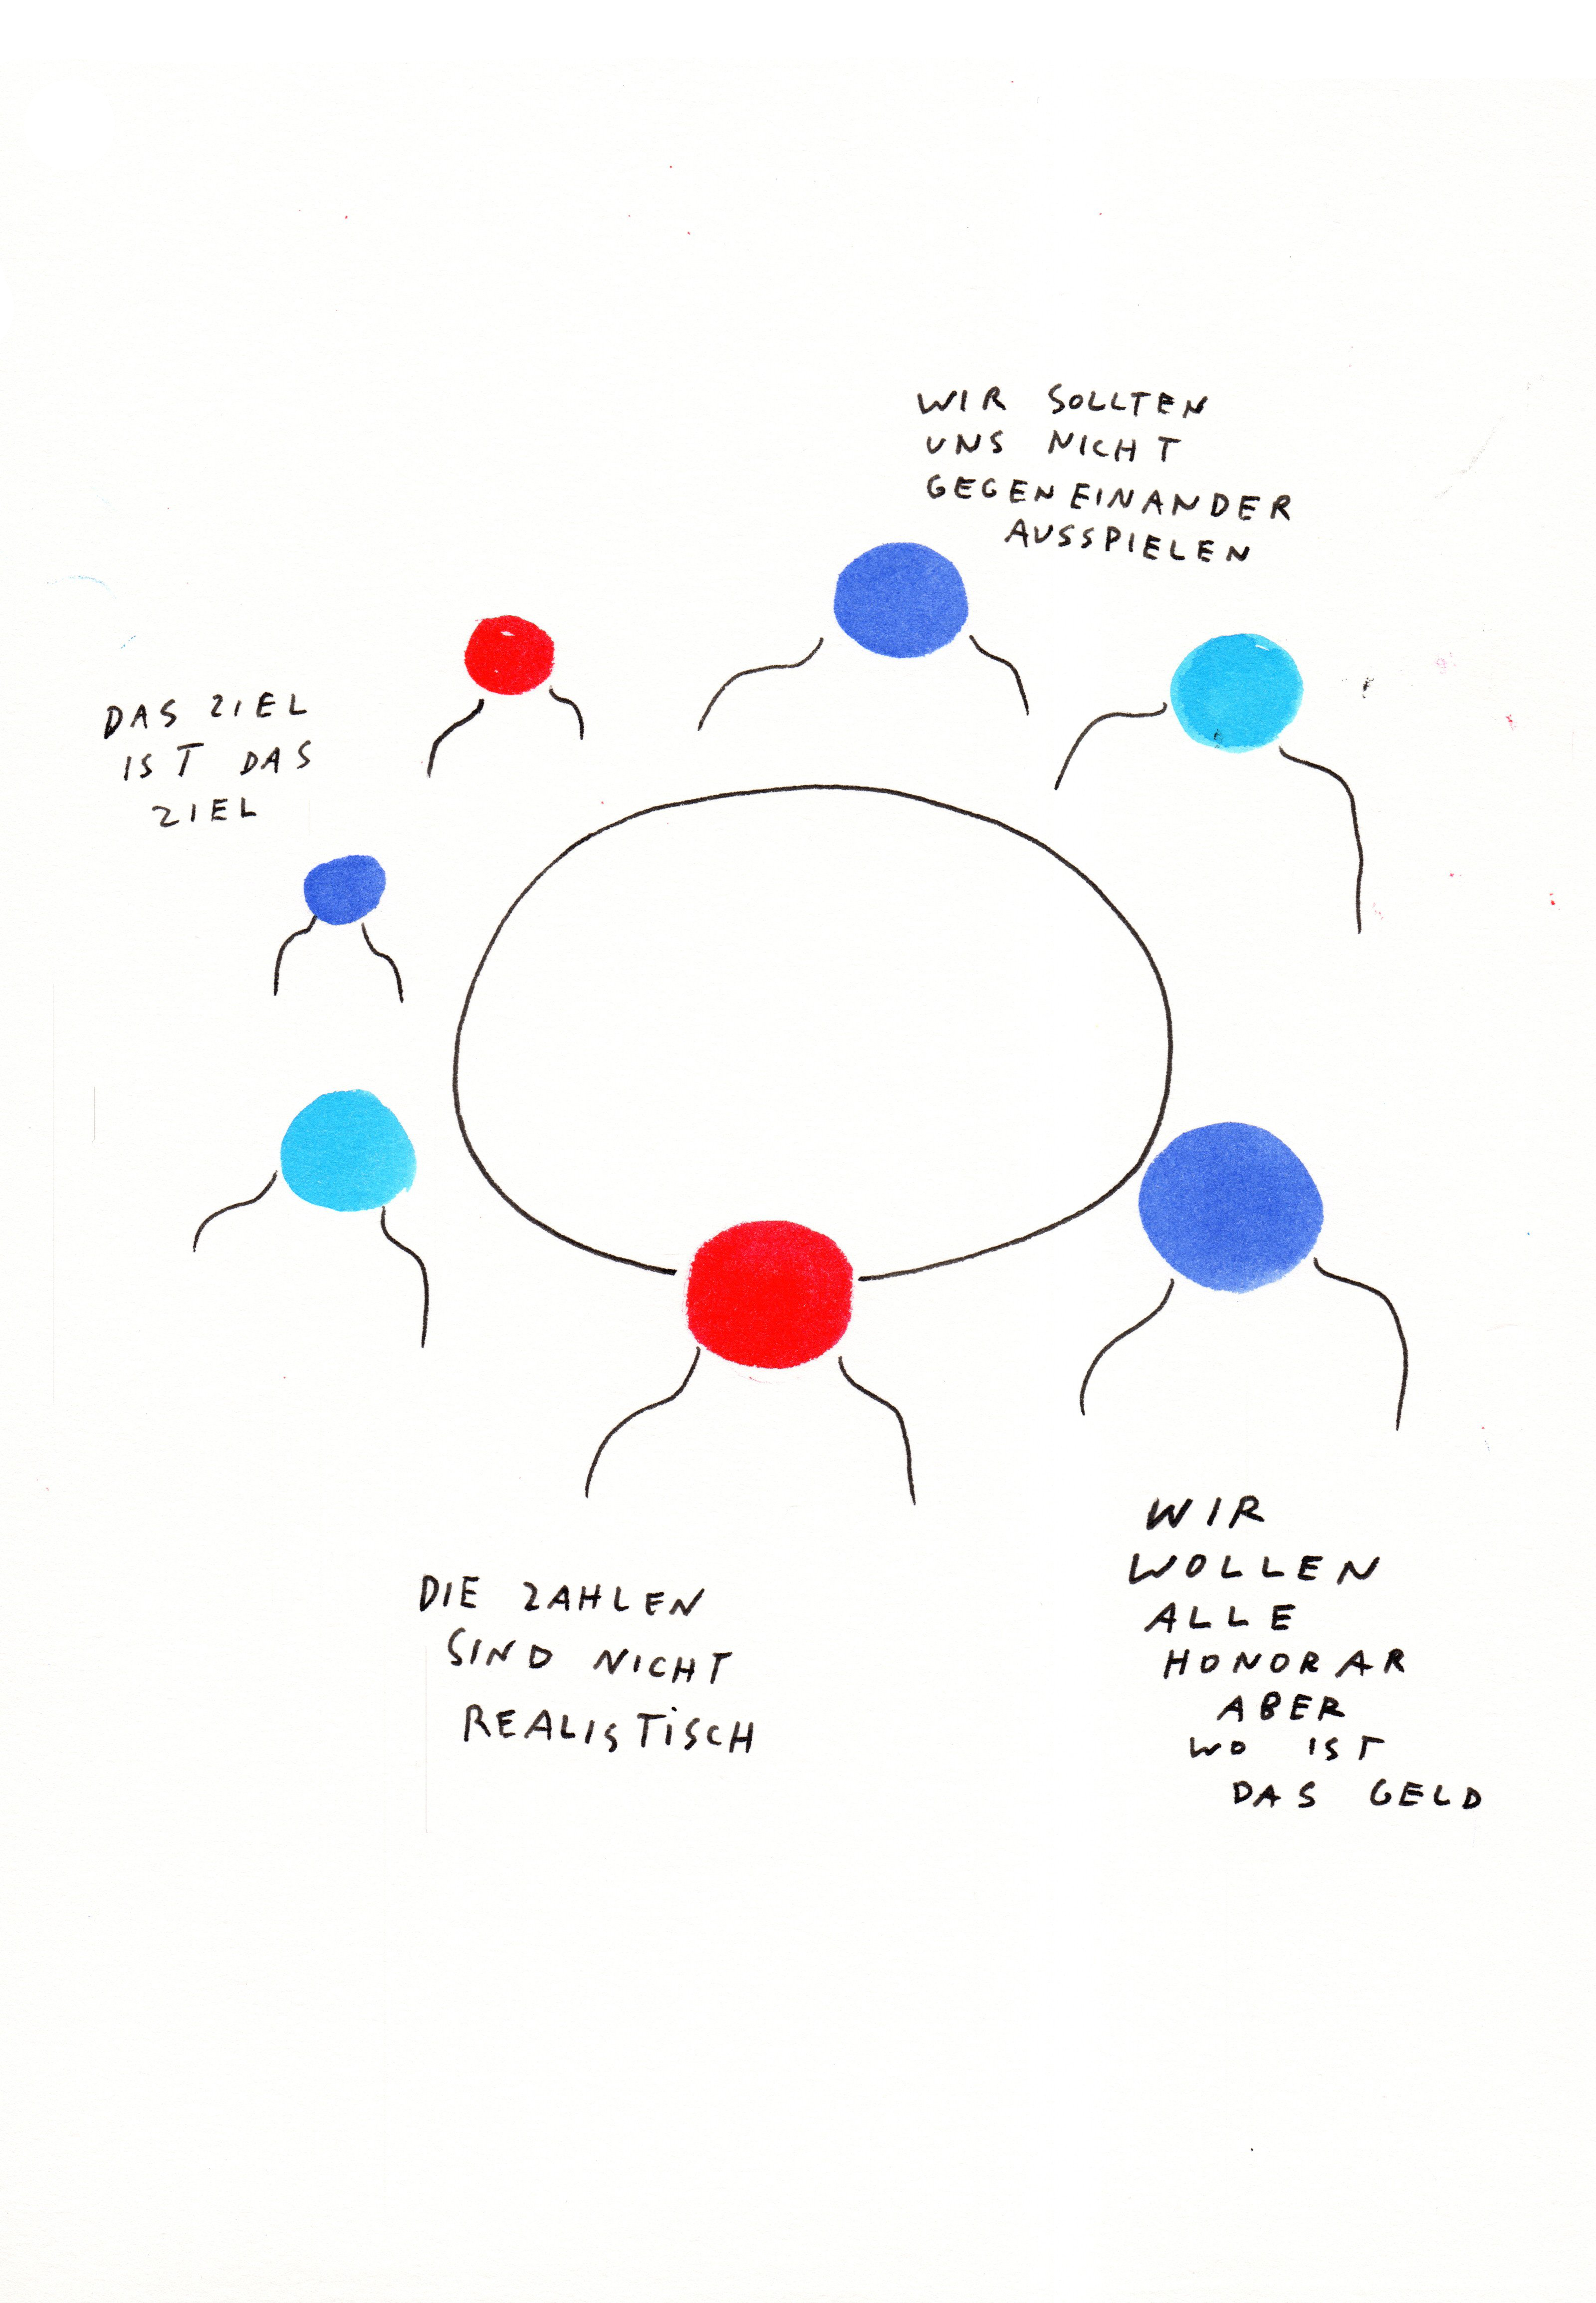 WIR SOLLTEN
UNS NICHT
GEGENEINANDER
AUSSPIELEN
DAS ZIEL
IST DAS
ZIEL
DIE ZAHLEN
SIND NICHT
REALISTISCH
WIR
WOLLEN
ALLE
HONORAR
ABER
WO IST
DAS GELD